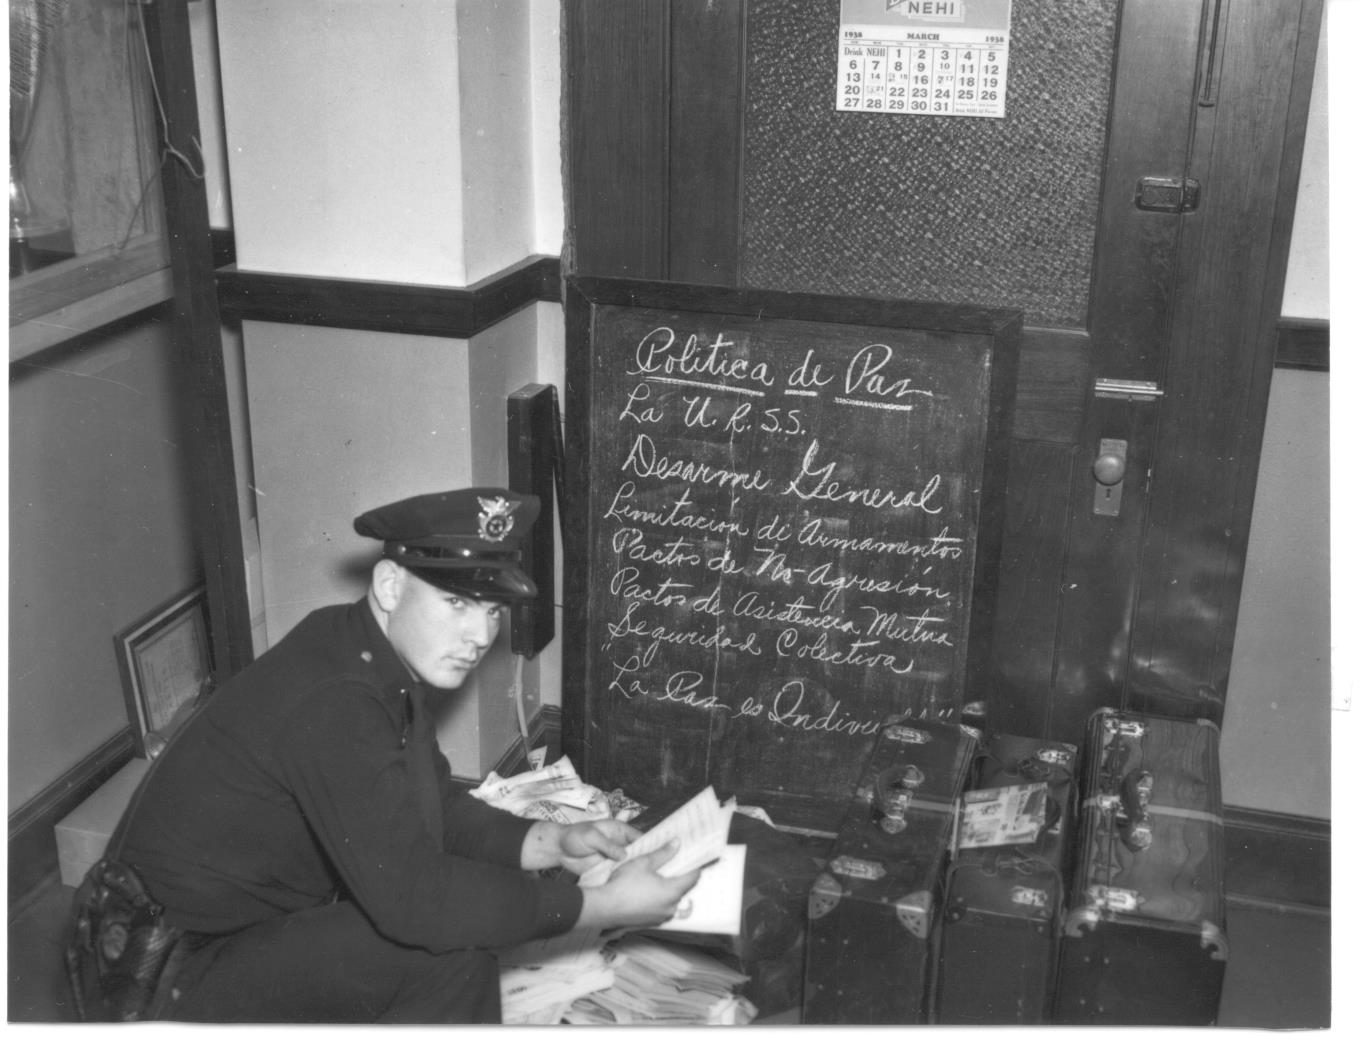 NEHI
1938 MARCH 1938
Drink NEHI 1 2 3 4 5
6 7 8 9 10 11 12
13 14 15 16 17 18 19
20 21 22 23 24 25 26
27 28 29 30 31
Política de Paz
La U.R.S.S.
Desarme General
Limitacion de Armamentos
Pactos de No-Agresión
Pactos de Asistencia Mutua
Seguridad Colectiva
"La Paz es